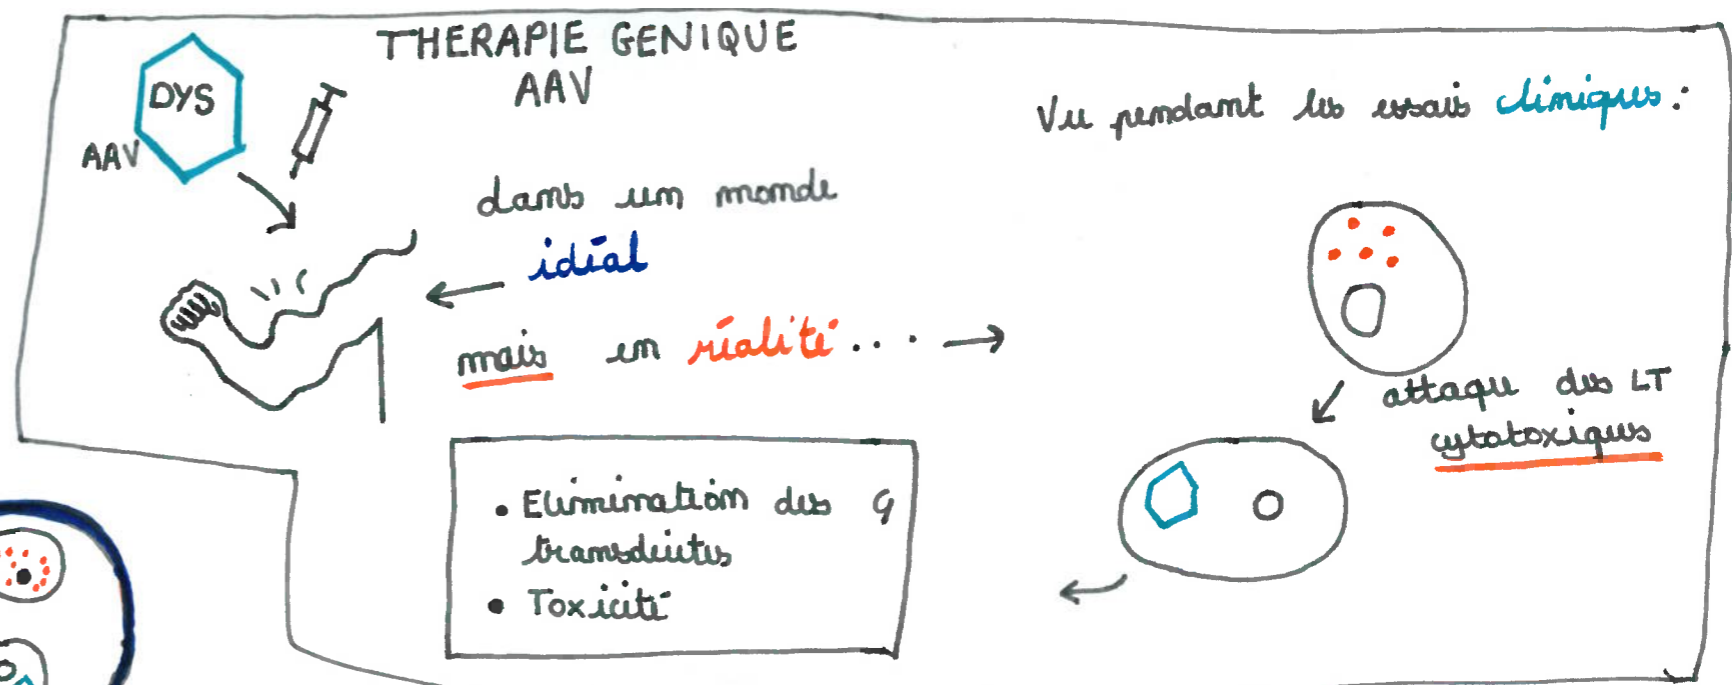 THERAPIE GENIQUE
AAV
DYS
AAV
dans un monde
idéal
mais en réalité...
Vu pendant les essais cliniques :
attaque des LT
cytotoxiques
• Elimination des
transduites
• Toxicité